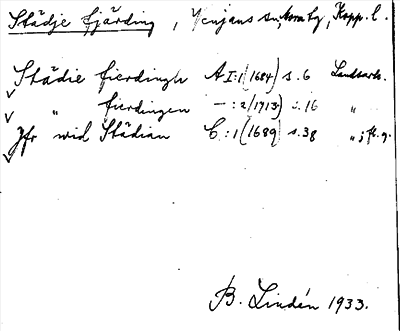 Städje fjärding, Venjans sn, Mora tg, Kopp. l.
Städie fierdingh A I:1 (1684) s. 6 Landsark.
" fierdingen — :2 (1713) s. 16 "
Jfr wid Städian C:1 (1689) s. 38 " ; fl. g.
B. Lindén 1933.